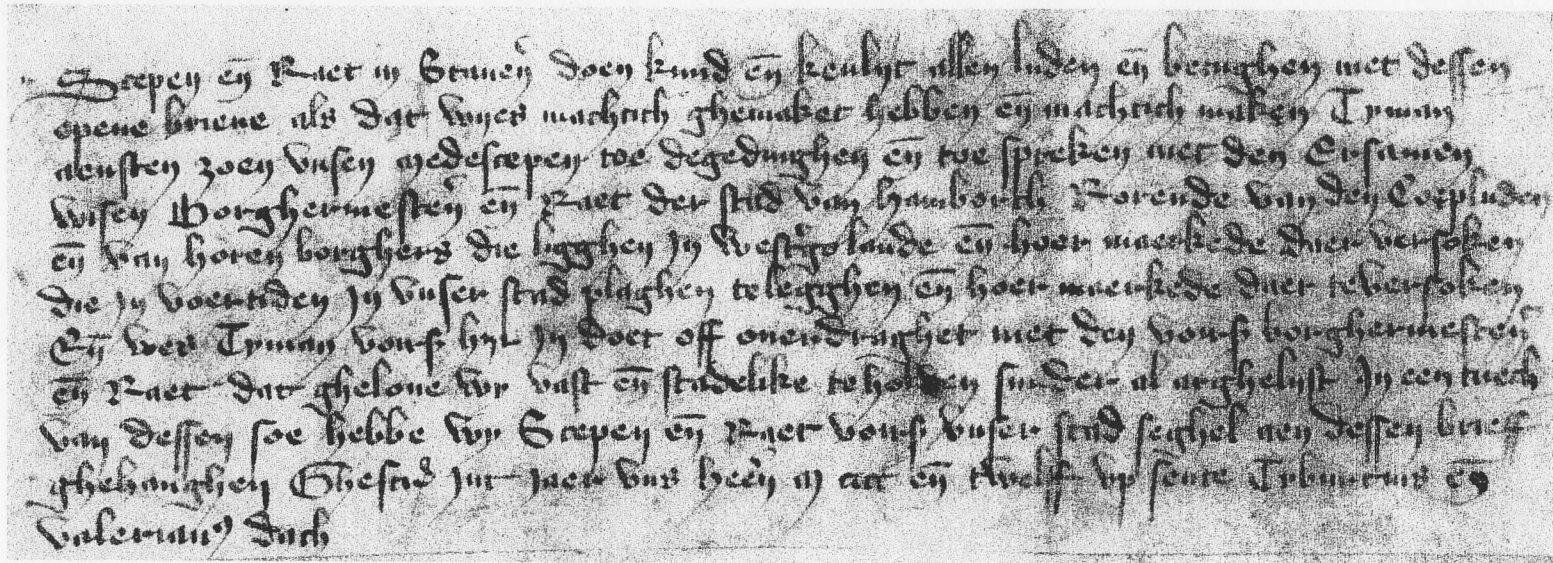 Scepen en̄ Raet in Stauen̉ doen kund en̄ kenlijc allen luden en̄ betughen met dessen
opene brieue als dat wijes machtich ghemaket hebben en̄ machtich maken Tyman
zoen vnsen medescepen toe degedinghen en̄ toe spreken met den Ersamen
wisen Borghermesten̉ en̄ Raet der stad van hamborch Rorende van den Coepluden
en̄ van horen borghers die ligghen jn Westr̉golande en̄ hoer maerkede daer versoken
die jn voertiden jn vnser stad plaghen te legghen en̄ hoer maerkede daer te versoken
En̄ wes Tyman vors̄ hijr jn doet off ouerdraghet met den vors̄ borghermesten̉
en̄ Raet dat ghelone wy vast en̄ stadelike te holden sunder al arghelijst Jn een tuech
van dessen soe hebbe wy Scepen en̄ Raet vors̄ vnser stad seghel aen dessen brieff
ghehanghen Ghescr̉ jnt jaer vns heren̉ m cccc en̄ twelff vp sente Tyburcius en̄
valerian⁹ dach